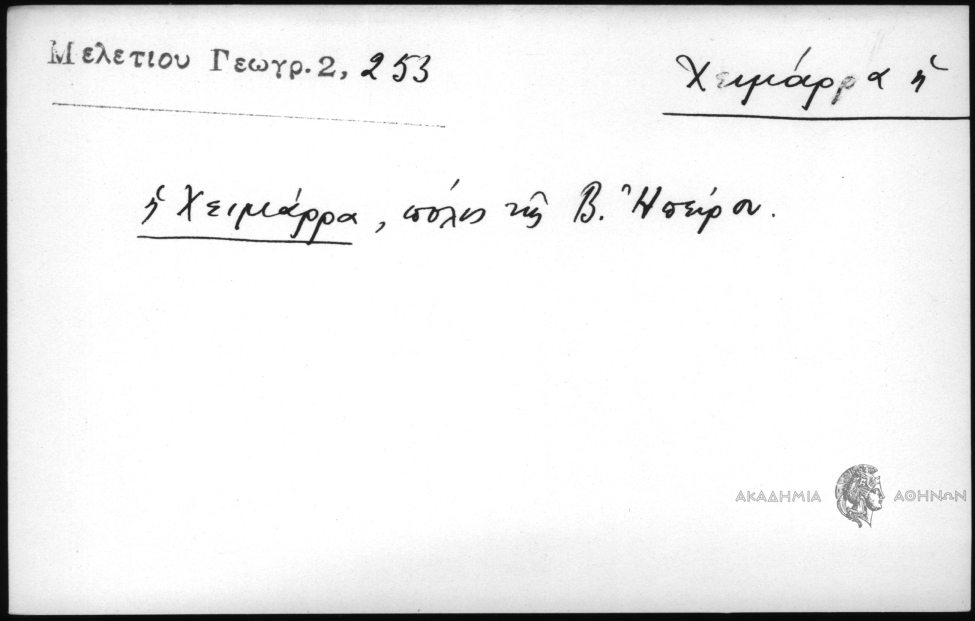 Μελετιου Γεωγρ. 2, 253
Χειμάρρα ἡ
ἡ Χειμάρρα, πόλις τῆς Β. Ἠπείρου.
ΑΚΑΔΗΜΙΑ ΑΘΗΝΩΝ